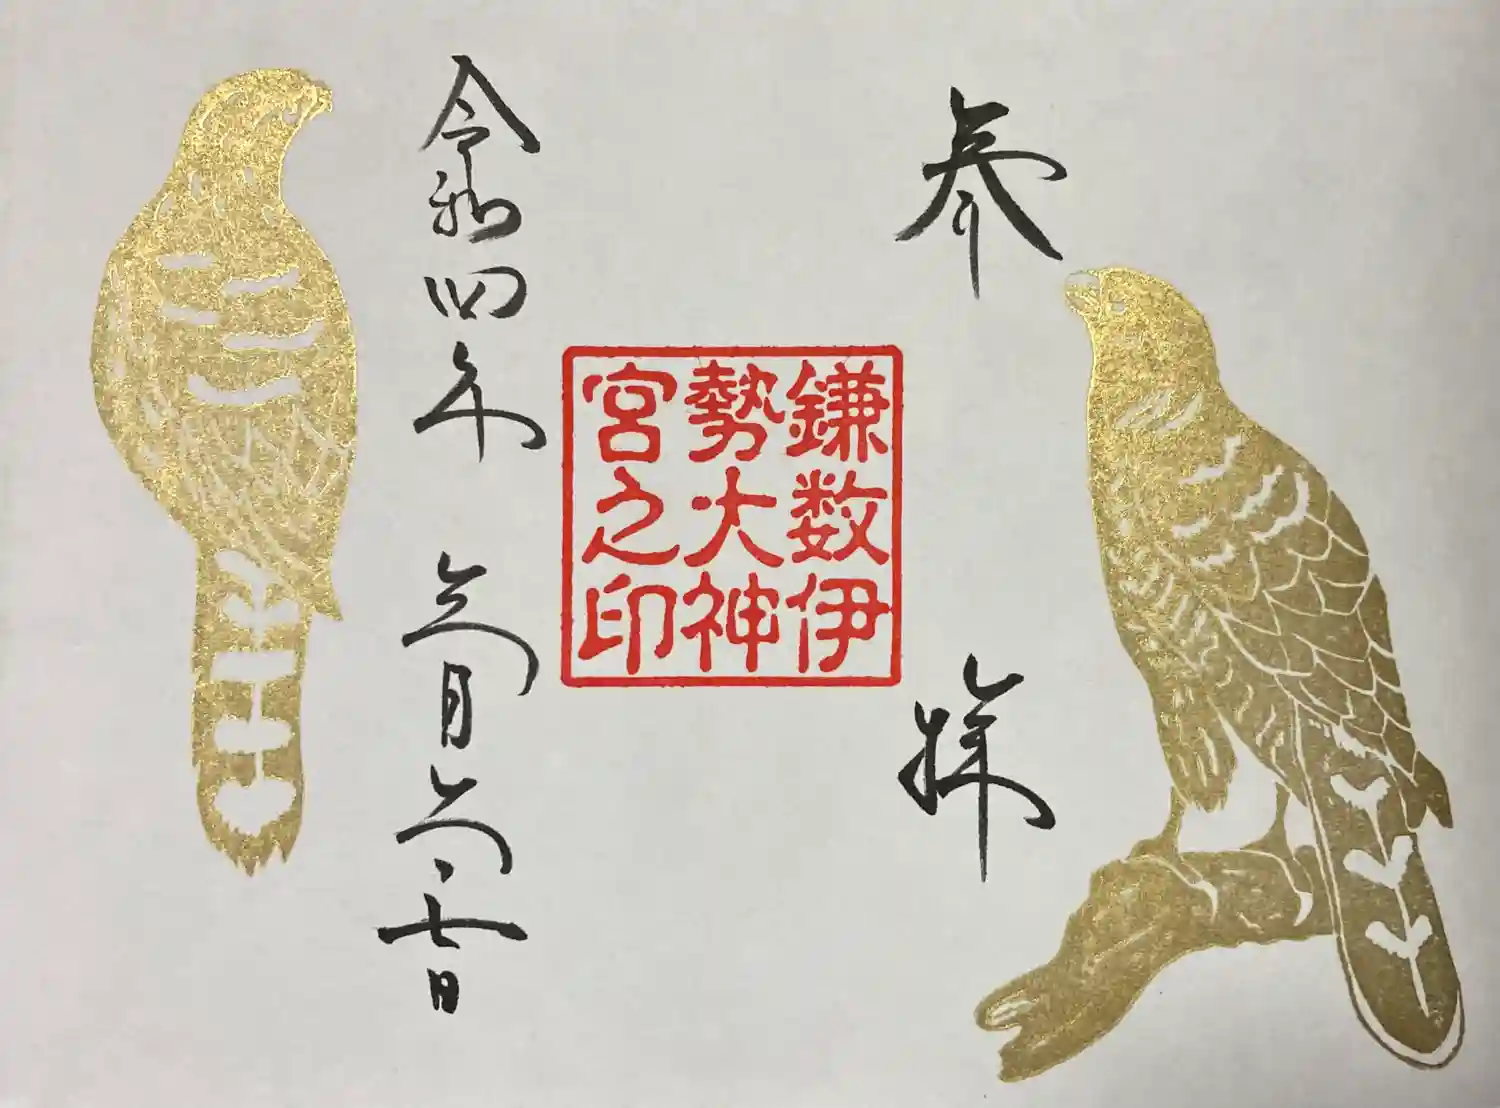 参拝
鎌数伊
勢大神
宮之印
令和四年 月 七日